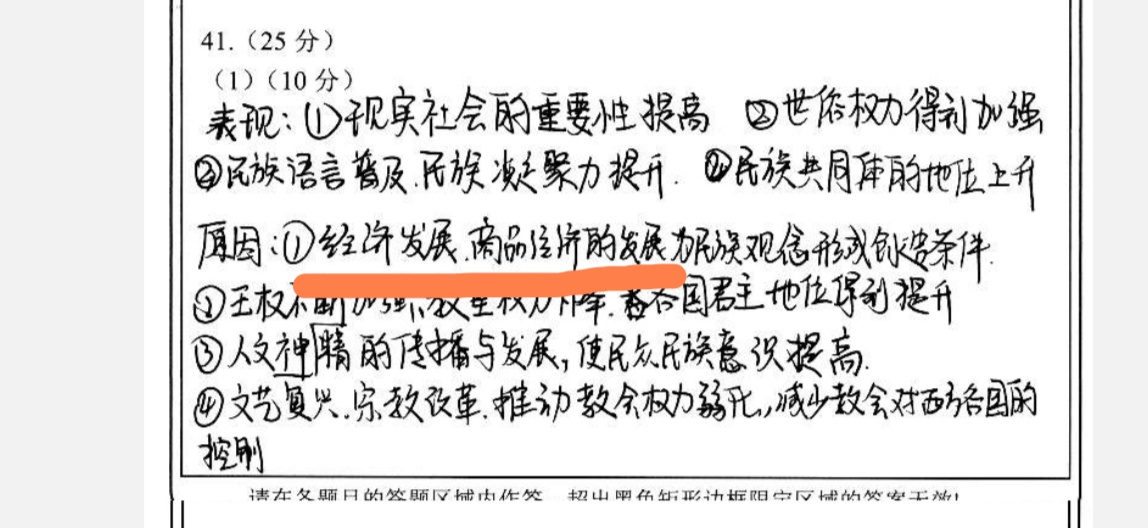 41.（25 分）
（1）（10 分）
表现：①现实社会的重要性提高 ②世俗权力得到加强
③民族语言普及.民族凝聚力提升. ④民族共同体的地位上升
原因：①经济发展.商品经济的发展为民族观念形成创造条件.
②王权不断加强.教皇权力下降.各国君主地位得到提升
③人文神精的传播与发展,使民众民族意识提高.
④文艺复兴.宗教改革.推动教会权力弱化,减少教会对西方各国的
控制
请在各题目的答题区域内作答，超出黑色矩形边框限定区域的答案无效!